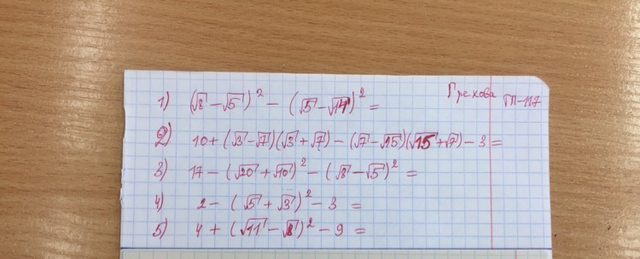 Грехова ГП-117
1) (√8 - √5)² - (√5 - √14)² =
2) 10 + (√3 - √7)(√3 + √7) - (√7 - √15)(√15 + √7) - 3 =
3) 17 - (√20 + √10)² - (√8 - √5)² =
4) 2 - (√5 + √3)² - 3 =
5) 4 + (√11 - √8)² - 9 =